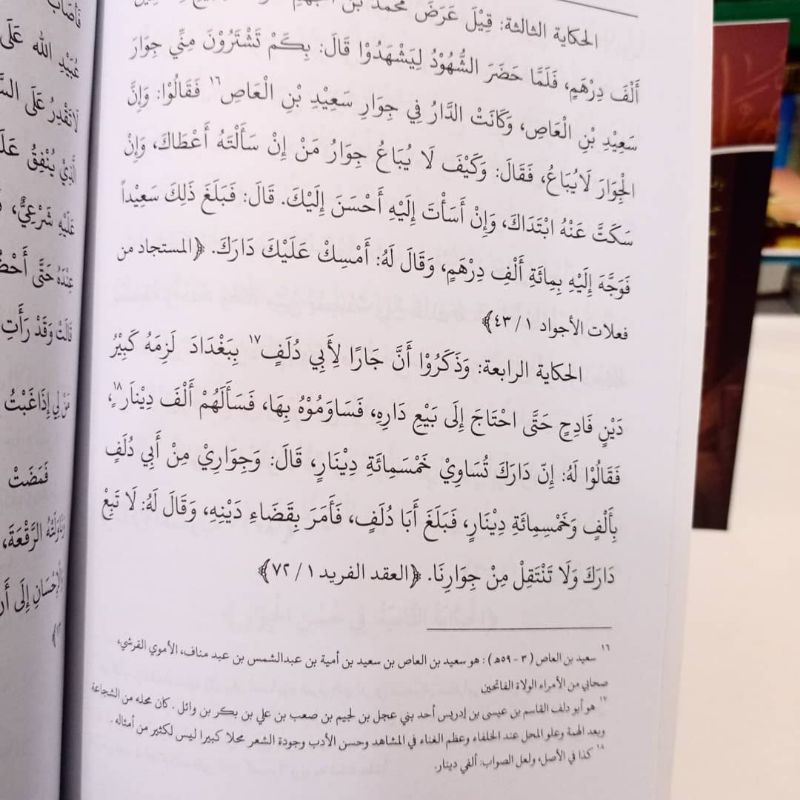 الحكاية الثالثة: قِيْلَ عَرَضَ مُحَمَّدُ بْنُ
أَلْفَ دِرْهَمٍ، فَلَمَّا حَضَرَ الشُّهُوْدُ لِيَشْهَدُوْا قَالَ: بِكَمْ تَشْتَرُوْنَ مِنِّي جِوَارَ
سَعِيْدِ بْنِ الْعَاصِ، وَكَانَتْ الدَّارُ فِي جِوَارِ سَعِيْدِ بْنِ الْعَاصِ¹⁶ فَقَالُوْا: وَإِنَّ
الْجِوَارَ لَايُبَاعُ، فَقَالَ: وَكَيْفَ لَا يُبَاعُ جِوَارُ مَنْ إِنْ سَأَلْتَهُ أَعْطَاكَ، وَإِنْ
سَكَتَّ عَنْهُ ابْتَدَاكَ، وَإِنْ أَسَأْتَ إِلَيْهِ أَحْسَنَ إِلَيْكَ. قَالَ: فَبَلَغَ ذَلِكَ سَعِيْداً
فَوَجَّهَ إِلَيْهِ بِمِائَةِ أَلْفِ دِرْهَمٍ، وَقَالَ لَهُ: أَمْسِكْ عَلَيْكَ دَارَكَ. ﴿المستجاد من
فعلات الأجواد ١/ ٤٣﴾
الحكاية الرابعة: وَذَكَرُوْا أَنَّ جَارًا لِأَبِي دُلَفٍ¹⁷ بِبَغْدَادَ لَزِمَهُ كَبِيْرُ
دَيْنٍ فَادِحٍ حَتَّى احْتَاجَ إِلَى بَيْعِ دَارِهِ، فَسَاوَمُوْهُ بِهَا، فَسَأَلَهُمْ أَلْفَ دِيْنَارٍ¹⁸،
فَقَالُوْا لَهُ: إِنّ دَارَكَ تُسَاوِيْ خَمْسَمِائَةِ دِيْنَارٍ، قَالَ: وَجِوَارِيْ مِنْ أَبِي دُلَفٍ
بِأَلْفٍ وَخَمْسِمِائَةِ دِيْنَارٍ، فَبَلَغَ أَبَا دُلَفٍ، فَأَمَرَ بِقَضَاءِ دَيْنِهِ، وَقَالَ لَهُ: لَا تَبِعْ
دَارَكَ وَلَا تَنْتَقِلْ مِنْ جِوَارِنَا. ﴿العقد الفريد ١/ ٧٢﴾
¹⁶ سعيد بن العاص (٣ - ٥٩هـ): هو سعيد بن العاص بن سعيد بن أمية بن عبدالشمس بن عبد مناف، الأموي القرشي،
صحابي من الأمراء الولاة الفاتحين
¹⁷ هو أبو دلف القاسم بن عيسى بن إدريس أحد بني عجل بن لجيم بن صعب بن علي بن بكر بن وائل. كان محله من الشجاعة
وبعد الهمة وعلو المحل عند الخلفاء وعظم الغناء في المشاهد وحسن الأدب وجودة الشعر محلا كبيرا ليس لكثير من أمثاله.
¹⁸ كذا في الأصل، ولعل الصواب: ألفي دينار.
عُبَيْدِ الله عَلَى
لَانَقْدِرُ عَلَى
الَّذِيْ يُنْفِقُ
عَلَيْهِ شَرْعِيٌّ،
عِنْدَهُ حَتَّى
قَالَتْ وَقَدْ رَأَتِ
مَنْ لِي إِذَا غَبْتُ
فَمَضَتْ
الرَّقْعَةَ،
إِلَى